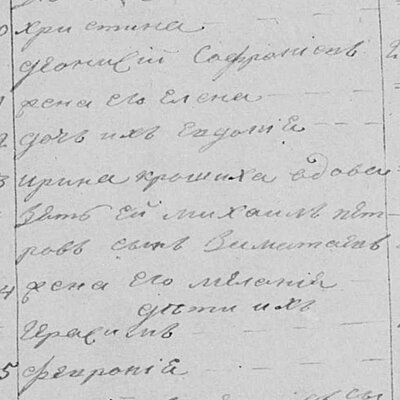 0 христина
деонисій Софроніевъ
жена его елена
2 дочъ ихъ евдокіѣ
3 ирина крошиха вдова
зять ей михаилъ пет
ровъ сынъ
4 жена его меланія
дѣти ихъ
герасимъ
5 февроніѣ